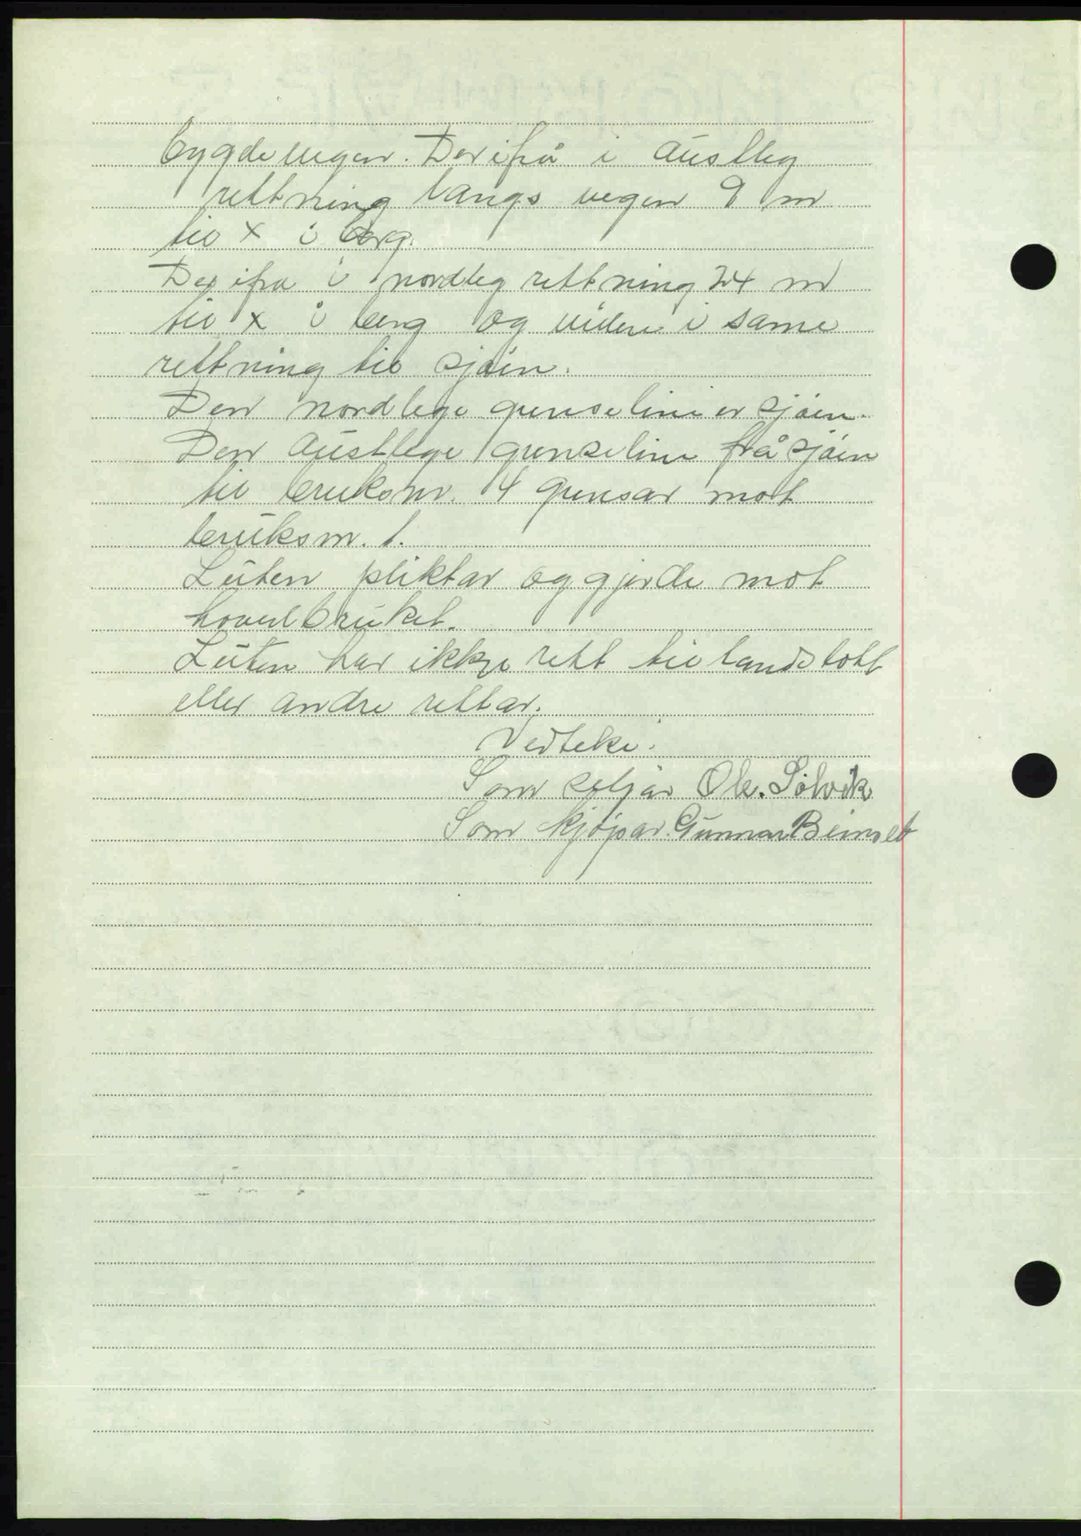 bygdevegen. Derifrå i austleg
rettning langs vegen 9 m
til x i berg.
Der ifra i nordleg rettning 24 m
til x i berg og videre i same
rettning til sjøin.
Den nordlege grenseline er sjøen.
Den austlege grenseline frå sjøin
til bruksnr. 4 grensar mot
bruksnr. 1.
Luten pliktar og gjerde mot
hovedbruket.
Luten har ikkje rett til landstøtt
eller andre rettar.
Vedteke:
Som seljar Ole. Solvik
Som kjøpar. Gunnar